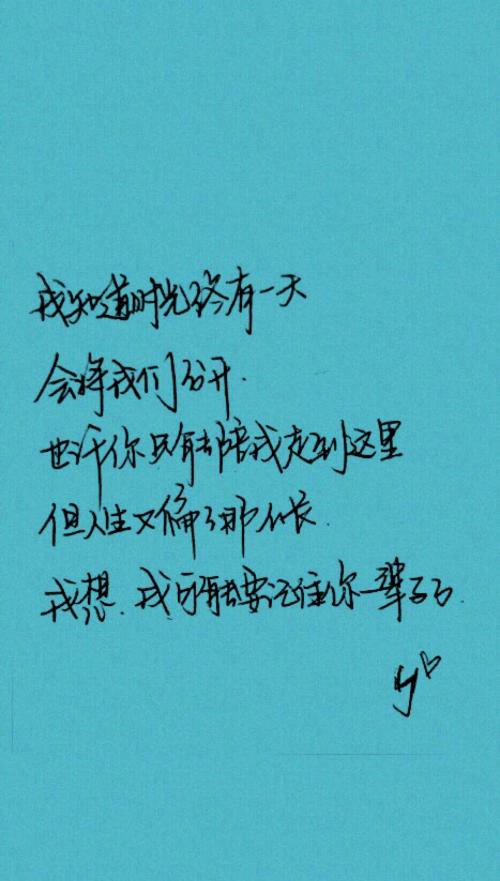 我知道时光终有一天
会将我们分开.
也许你只能陪我走到这里
但人生又偏偏那么长.
我想.我可能要记住你一辈子了.
y♡